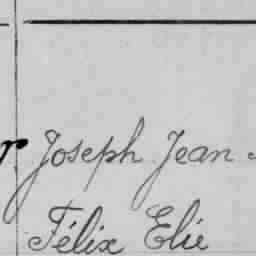 r Joseph Jean
Félix Elie